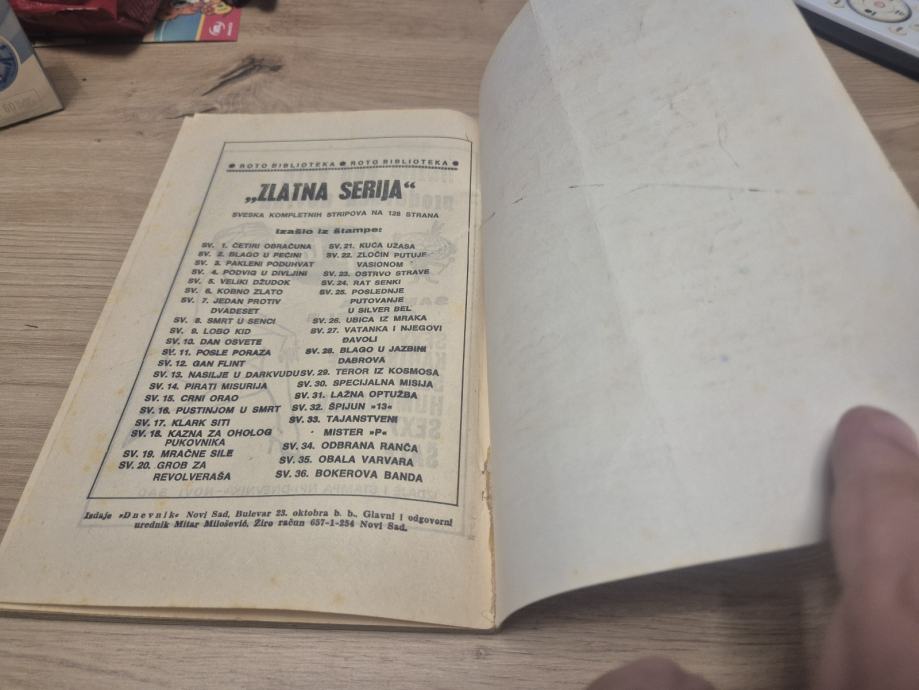 ● ROTO BIBLIOTEKA ● ROTO BIBLIOTEKA ●
„ZLATNA SERIJA“
SVESKA KOMPLETNIH STRIPOVA NA 128 STRANA
Izašlo iz štampe:
SV. 1. ČETIRI OBRAČUNA
SV. 2. BLAGO U PEĆINI
SV. 3. PAKLENI PODUHVAT
SV. 4. PODVIG U DIVLJINI
SV. 5. VELIKI DŽUDOK
SV. 6. KOBNO ZLATO
SV. 7. JEDAN PROTIV
DVADESET
SV. 8. SMRT U SENCI
SV. 9. LOBO KID
SV. 10. DAN OSVETE
SV. 11. POSLE PORAZA
SV. 12. GAN FLINT
SV. 13. NASILJE U DARKVUDU
SV. 14. PIRATI MISURIJA
SV. 15. CRNI ORAO
SV. 16. PUSTINJOM U SMRT
SV. 17. KLARK SITI
SV. 18. KAZNA ZA OHOLOG
PUKOVNIKA
SV. 19. MRAČNE SILE
SV. 20. GROB ZA
REVOLVERAŠA
SV. 21. KUĆA UŽASA
SV. 22. ZLOČIN PUTUJE
VASIONOM
SV. 23. OSTRVO STRAVE
SV. 24. RAT SENKI
SV. 25. POSLEDNJE
PUTOVANJE
U SILVER BEL
SV. 26. UBICA IZ MRAKA
SV. 27. VATANKA I NJEGOVI
ĐAVOLI
SV. 28. BLAGO U JAZBINI
DABROVA
SV. 29. TEROR IZ KOSMOSA
SV. 30. SPECIJALNA MISIJA
SV. 31. LAŽNA OPTUŽBA
SV. 32. ŠPIJUN »13«
SV. 33. TAJANSTVENI
MISTER »P«
SV. 34. ODBRANA RANČA
SV. 35. OBALA VARVARA
SV. 36. BOKEROVA BANDA
Izdaje »Dnevnik« Novi Sad, Bulevar 23. oktobra b. b., Glavni i odgovorni
urednik Mitar Milošević, Žiro račun 657-1-254 Novi Sad.